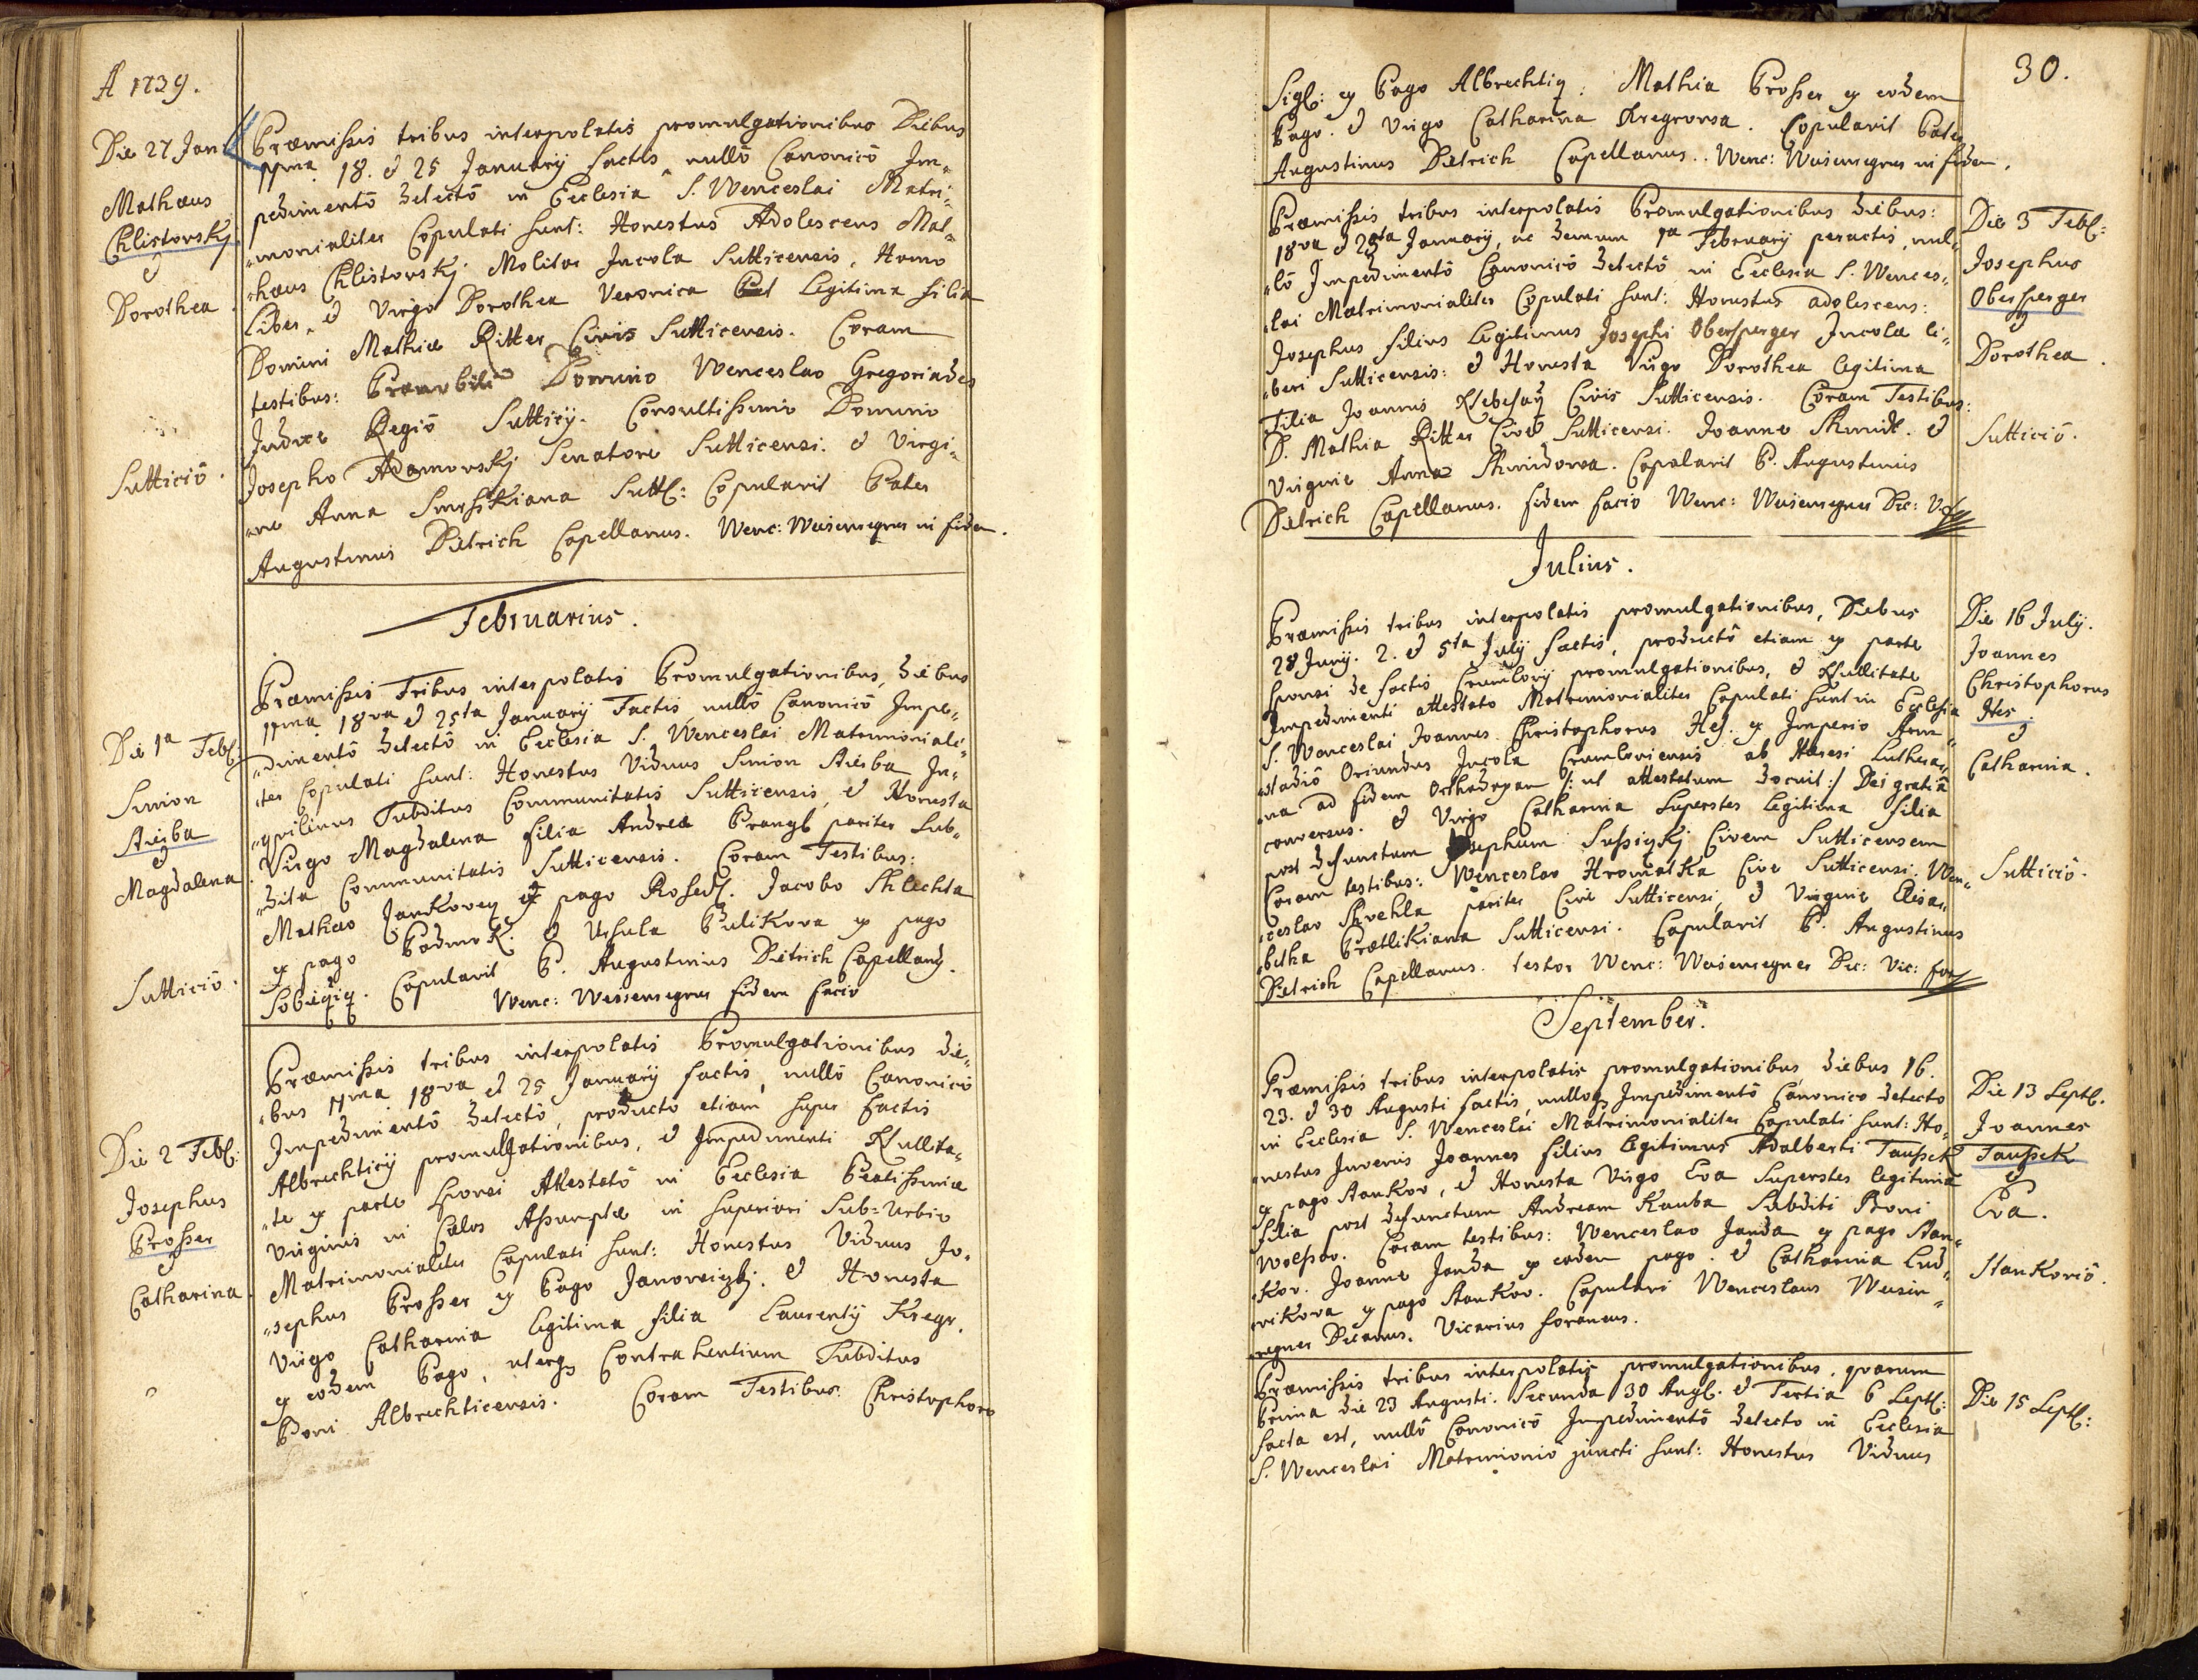 A 1739.
Die 27 Jan
Mathæus
Chlistovskÿ
et
Dorothea.
Sutticiō.
Præmissis tribus interpolatis promulgationibus Diebus
11ma. 18. et 25 Januarÿ factis nullō Canonicō Im-
pedimentō detectō in Ecclesia S. Wenceslai Matri-
monialiter Copulati sunt: Honestus Adolescens Mat-
hæus Chlistovskÿ Molitor Incola Sutticensis, Homo
Liber, et Virgo Dorothea Veronica Legitima filia
Domini Mathiæ Ritter Civis Sutticensis. Coram
testibus: Prænobili Domino Wenceslao Gregoriades
Judice Regiō Sutticÿ. Consultissimo Domino
Josepho Adamovskÿ Senatore Sutticensi. et Virgi-
ne Anna Smrsikiana Sutt: Copulavit Pater
Augustinus Dietrich Capellanus. Wenc: Weisenregner in fidem.
Februarius.
Die 1a Feb:
Simon
Stieba
et
Magdalena.
Sutticiō.
Præmissis Tribus interpolatis Promulgationibus, diebus
11ma. 18va et 25ta Januarÿ Factis nullō Canonicō Impe-
dimentō detectō in Ecclesia S. Wenceslai Matrimoniali-
ter Copulati sunt: Honestus Viduus Simon Stieba In-
quilinus Subditus Communitatis Sutticensis, et Honesta
Virgo Magdalena filia Andreæ Prangl pariter Sub-
dita Communitatis Sutticensis. Coram Testibus:
Matheo Jankovey ex pago Rosed. Jacobo Schlechta
ex pago Podmok. et Ursula Pulikova ex pago
Copulavit P. Augustinus Dietrich Capellanus.
Wenc: Weisenregner fidem facio
Die 2 Feb:
Josephus
Prosser
et
Catharina.
Præmissis tribus interpolatis Promulgationibus die-
bus 11ma. 18va et 25 Januarÿ factis, nullō Canonicō
Impedimentō detectō, productō etiam super factis
Albrechticÿ promulgationibus, et Impedimenti Nullita-
te ex parte Sponsi Attestatō in Ecclesia Beatissimæ
Virginis in Cælos Assumptæ in Superiori Sub-Urbio
Matrimonialiter Copulati sunt: Honestus Viduus Jo-
sephus Prosser ex Pago Janowiczkÿ. et Honesta
Virgo Catharina legitima filia Laurentÿ Kregr.
ex eodem Pago, uterq3 Contrahentium Subditus
Boni Albrechticensis. Coram Testibus: Christophoro
30.
Sigl: ex Pago Albrechtiz: Mathia Prosser ex eodem
Pago. et Virgo Catharina Kregrova. Copulavit Pater
Augustinus Dietrich Capellanus. Wenc: Weisenregner in fidem.
Præmissis tribus interpolatis Promulgationibus diebus:
18va et 25ta Januarÿ, ac demum 1a Februarÿ peractis, nul-
lō Impedimentō Canonicō detectō in Ecclesia S. Wences-
lai Matrimonialiter Copulati sunt: Honestus adolescens:
Josephus filius Legitimus Josephi Obersperger Incolæ li-
beri Sutticensis: et Honesta Virgo Dorothea legitima
Filia Joannis Civis Sutticensis. Coram Testibus:
D. Mathia Ritter Cive Sutticensi. Joanne Shmidt. et
Virgine Anna Shmidowa. Copulavit P. Augustinus
Dietrich Capellanus. fidem facio Wenc: Weisenregner Dec: V: f
Die 3 Feb:
Josephus
Obersperger
et
Dorothea.
Sutticiō.
Julius.
Præmissis tribus interpolatis promulgationibus, Diebus
28 Junÿ. 2. et 5ta Julÿ factis, productō etiam ex parte
Sponsi de factis Crumlovÿ promulgationibus, et Nullitate
Impedimenti attestato Matrimonialiter Copulati sunt in Ecclesia
S. Wenceslai Joannes Christophorus Hes. ex Imperio Arm-
stadiō Oriundus Incola Crumloviensis ab Hæresi Luthera-
na ad fidem Orthodoxam /: ut attestatum docuit :/ Dei gratiâ
conversus. et Virgo Catharina Superstes legitima filia
post defunctum Josephum Sussizkÿ Civem Sutticensem
Coram testibus: Wenceslao Hromatka Cive Sutticensi. Wen-
ceslao Shvehla pariter Cive Sutticensi, et Virgine Elisa-
betha Prætlikiana Sutticensi. Copulavit P. Augustinus
Dietrich Capellanus. testor Wenc: Weisenregner Dec: Vic: for
Die 16 Julÿ.
Joannes
Christophorus
Hes.
et
Catharina.
Sutticiō.
September.
Præmissis tribus interpolatis promulgationibus, diebus 16.
23. et 30 Augusti factis, nulloq3 Impedimentō Canonico detecto
in Ecclesia S. Wenceslai Matrimonialiter Copulati sunt: Ho-
nestus Juvenis Joannes filius legitimus Adalberti Taussek
ex pago Stankov, et Honesta Virgo Eva Superstes legitima
filia post defunctum Andream Kauba Subditi Boni
Wolssov. Coram testibus: Wenceslao Janda ex pago Stan-
kov. Joanne Janda ex eodem pago. et Catharina Lud-
vikova ex pago Stankov. Copulavi Wenceslaus Weisen-
regner Decanus. Vicarius foraneus.
Die 13 Sept.
Joannes
Taussek
et
Eva.
Stankoviō.
Præmissis tribus interpolatis promulgationibus, quarum
Prima die 23 Augusti. Secunda 30 Aug. et Tertia 6 Sept:
facta est, nullō Canonicō Impedimentō detecto in Ecclesia
S. Wenceslai Matrimoniō juncti sunt: Honestus Viduus
Die 15 Sept: